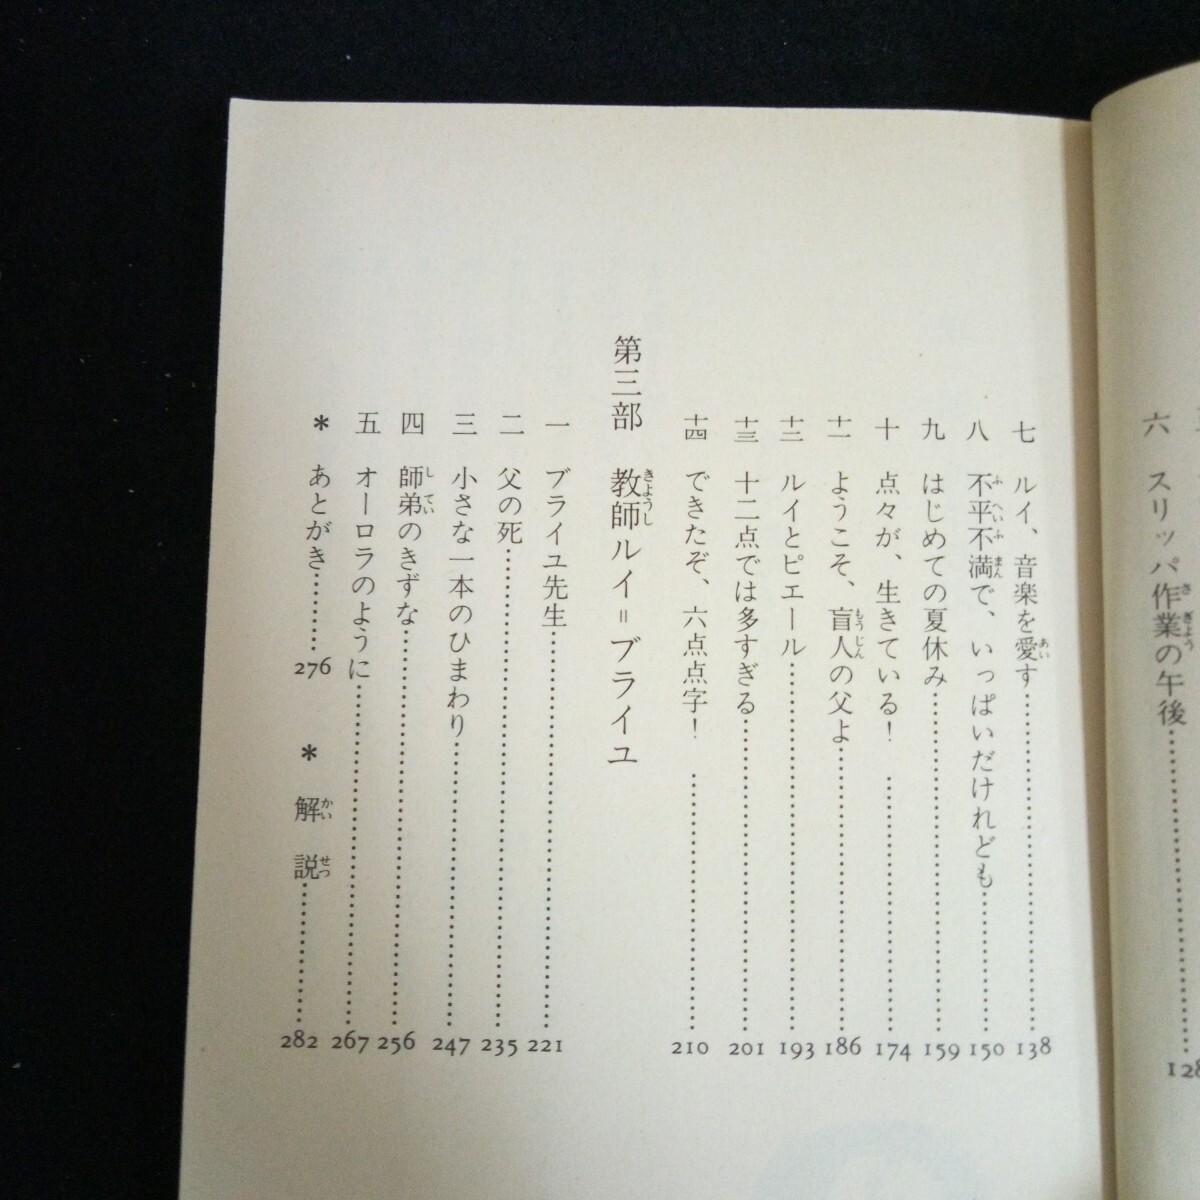 六 スリッパ作業の午後……………………128
七 ルイ、音楽を愛す……………………138
八 不平不満で、いっぱいだけれども…………150
九 はじめての夏休み……………………159
十 点々が、生きている！……………………174
十一 ようこそ、盲人の父よ……………………186
十二 ルイとピエール……………………193
十三 十二点では多すぎる……………………201
十四 できたぞ、六点点字！……………………210
第三部 教師ルイ＝ブライユ
一 ブライユ先生……………………221
二 父の死……………………235
三 小さな一本のひまわり……………………247
四 師弟のきずな……………………256
五 オーロラのように……………………267
＊ あとがき…………276
＊ 解説……………282